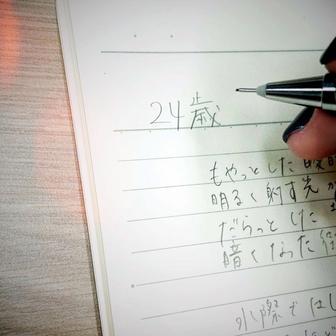 24歳
もやっとした
明るく射す先が
だらっとした
暗くなった
水際ではし